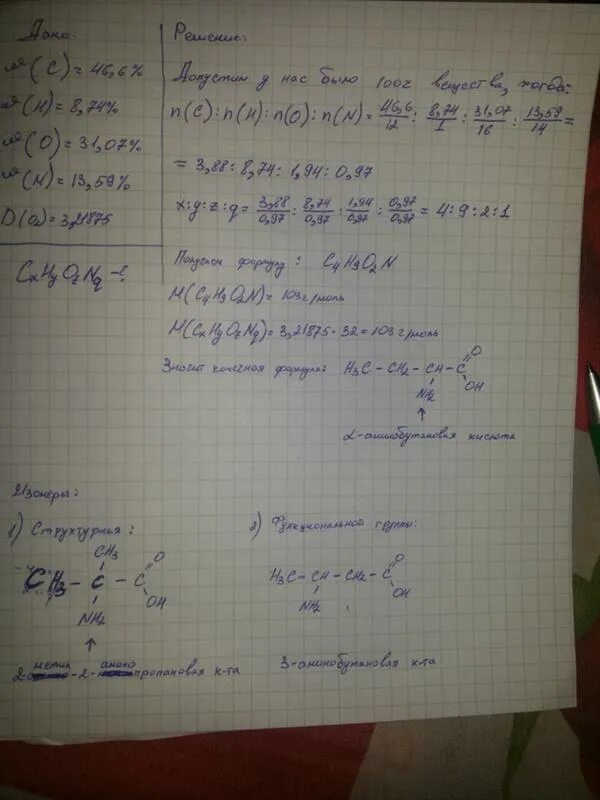 Дано:
ω(C) = 46,6%
ω(H) = 8,74%
ω(O) = 31,07%
ω(N) = 13,59%
D(O₂) = 3,21875
CxHyOzNq - ?
Решение:
Допустим у нас было 100г вещества, тогда:
n(C) : n(H) : n(O) : n(N) = 46,6/12 : 8,74/1 : 31,07/16 : 13,59/14 =
= 3,88 : 8,74 : 1,94 : 0,97
x:y:z:q = 3,88/0,97 : 8,74/0,97 : 1,94/0,97 : 0,97/0,97 = 4:9:2:1
Получаем формулу : C₄H₉O₂N
M(C₄H₉O₂N) = 103 г/моль
M(CxHyOzNq) = 3,21875 · 32 = 103 г/моль
Значит конечная формула: H₃C - CH₂ - CH - C
O
OH
NH₂
↑
α-аминобутановая кислота
Изомеры:
1) Структурная :
CH₃
CH₃ - C - C
O
OH
NH₂
↑
2-метил-2-аминопропановая к-та
2) Функциональной группы:
H₃C - CH - CH₂ - C
O
OH
NH₂
3-аминобутановая к-та